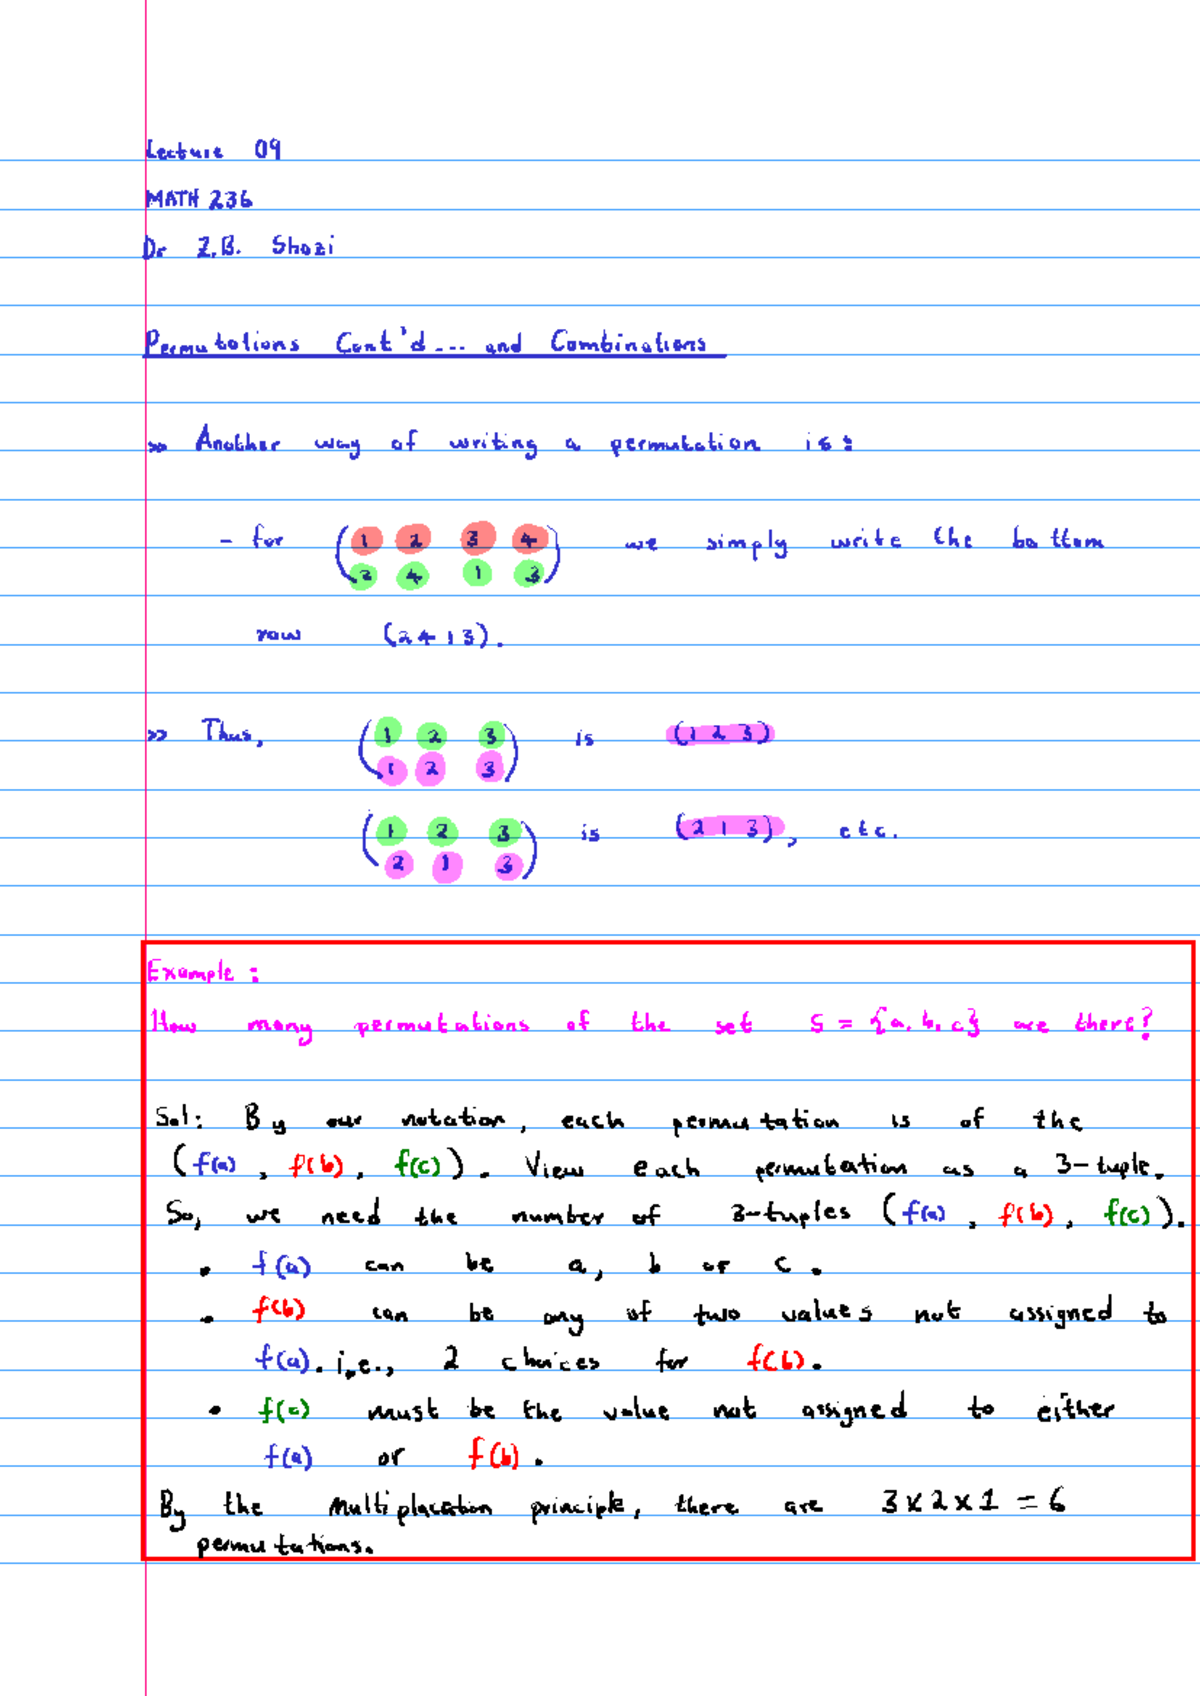 Lecture 09
MATH 236
Dr Z.B. Shozi
Permutations Cont'd... and Combinations
>> Another way of writing a permutation is:
- for (1 2 3 4) we simply write the bottom
(2 4 1 3)
row (2 4 1 3).
>> Thus, (1 2 3) is (1 2 3)
(1 2 3)
(1 2 3) is (2 1 3), etc.
(2 1 3)
Example:
How many permutations of the set S = {a, b, c} are there?
Sol: By our notation, each permutation is of the
(f(a), f(b), f(c)). View each permutation as a 3-tuple.
So, we need the number of 3-tuples (f(a), f(b), f(c)).
• f(a) can be a, b or c.
• f(b) can be any of two values not assigned to
f(a). i.e., 2 choices for f(b).
• f(c) must be the value not assigned to either
f(a) or f(b).
By the multiplacation principle, there are 3 x 2 x 1 = 6
permutations.